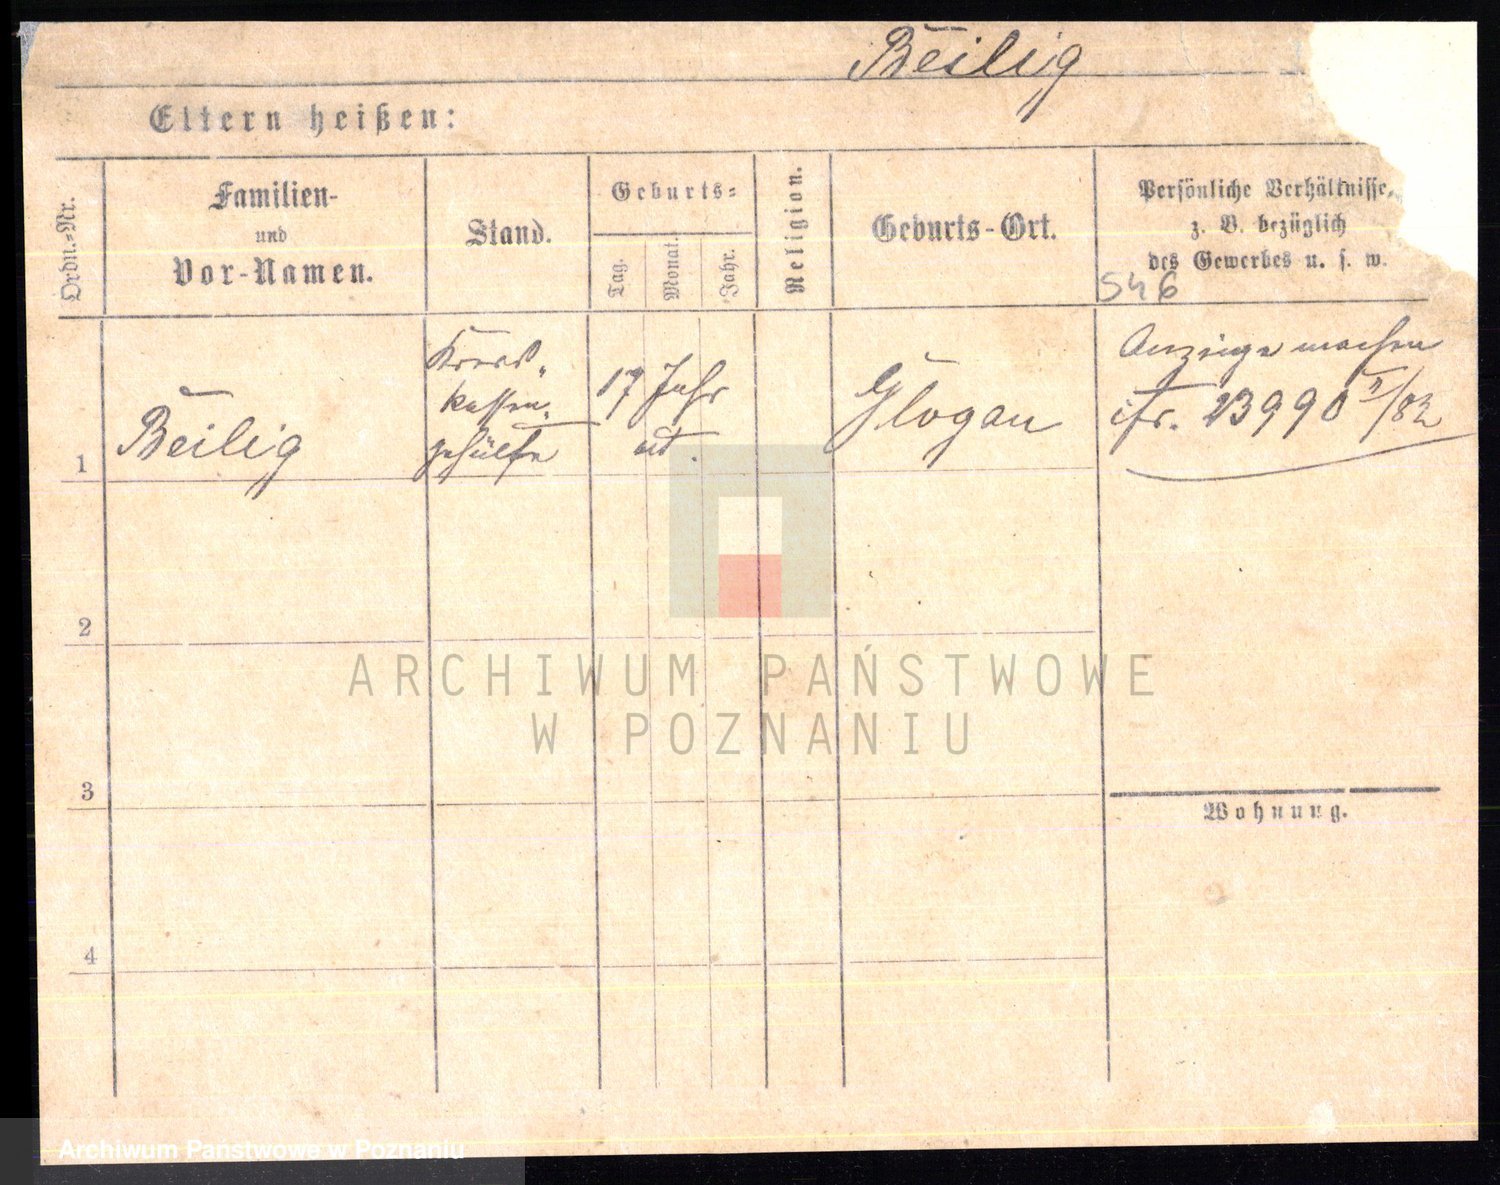 Beilig
Eltern heißen:
Ordn.-Nr.
Familien-
und
Vor-Namen.
Stand.
Geburts-
Tag.
Monat.
Jahr.
Religion.
Geburts-Ort.
Persönliche Verhältnisse,
z. B. bezüglich
des Gewerbes u. s. w.
546
1
Beilig
kassen-
gehülfe
17 Jahr
alt.
Glogau
Anzeige machen
cfr. 23990 /82
2
3
4
Wohnung.
ARCHIWUM PAŃSTWOWE
W POZNANIU
Archiwum Państwowe w Poznaniu